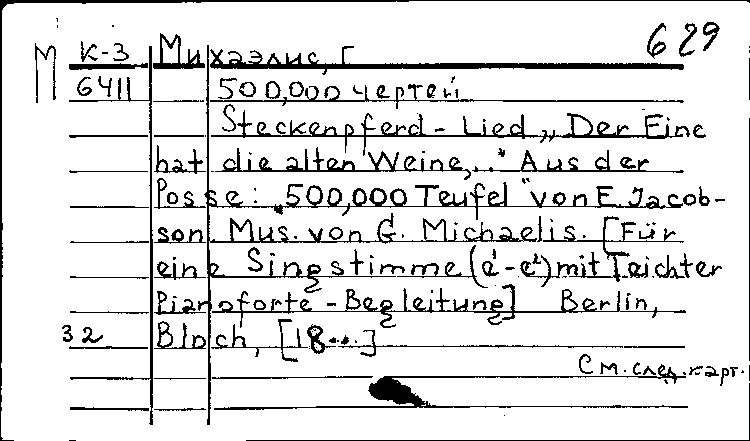 629
М К-3 Михаэлис, Г
6411 500,000 чертей
Steckenpferd - Lied „Der Eine
hat die alten Weine,..." Aus der
Posse: „500,000 Teufel" von E. Jacob-
son. Mus. von G. Michaelis. [Für
eine Singstimme (e¹-e²) mit Teichter
Pianoforte - Begleitung] Berlin,
32 Bloch, [18...]
См. след. карт.